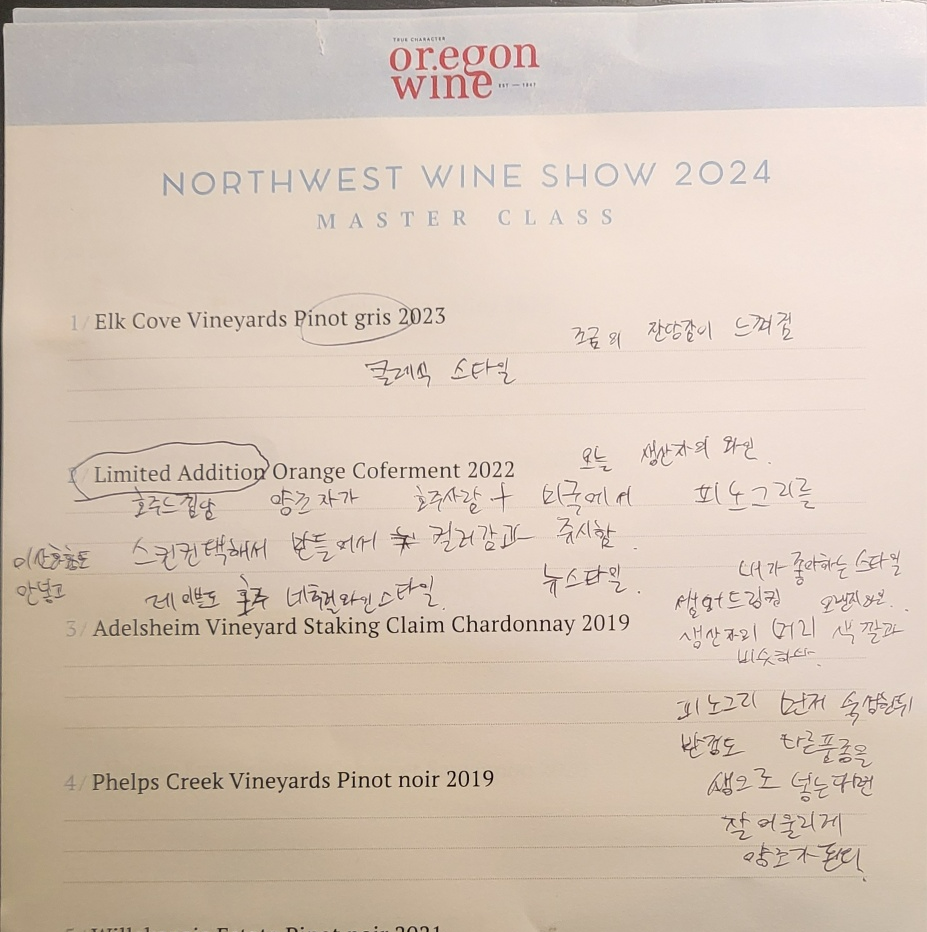 TRUE CHARACTER
oregon
wine
EST — 1987
NORTHWEST WINE SHOW 2024
MASTER CLASS
1/ Elk Cove Vineyards Pinot gris 2023
조금의 잔당감이 느껴짐
클래식 스타일
2/ Limited Addition Orange Coferment 2022
오늘 생산자의 와인.
호주느낌남 양조자가 호주사람 + 미국에서 피노그리를
스킨컨택해서 만들어서 컬러감과 중시함.
안넣고
레이블도 호주 네츄럴와인스타일. 뉴스타일.
내가 좋아하는 스타일
오렌지와인..
3/ Adelsheim Vineyard Staking Claim Chardonnay 2019
생산자의 머리 색깔과
비슷하다.
피노그리 먼저 숙성한뒤
반정도 다른품종을
4/ Phelps Creek Vineyards Pinot noir 2019
생으로 넣는다면
잘어울리게
양조가 된다.